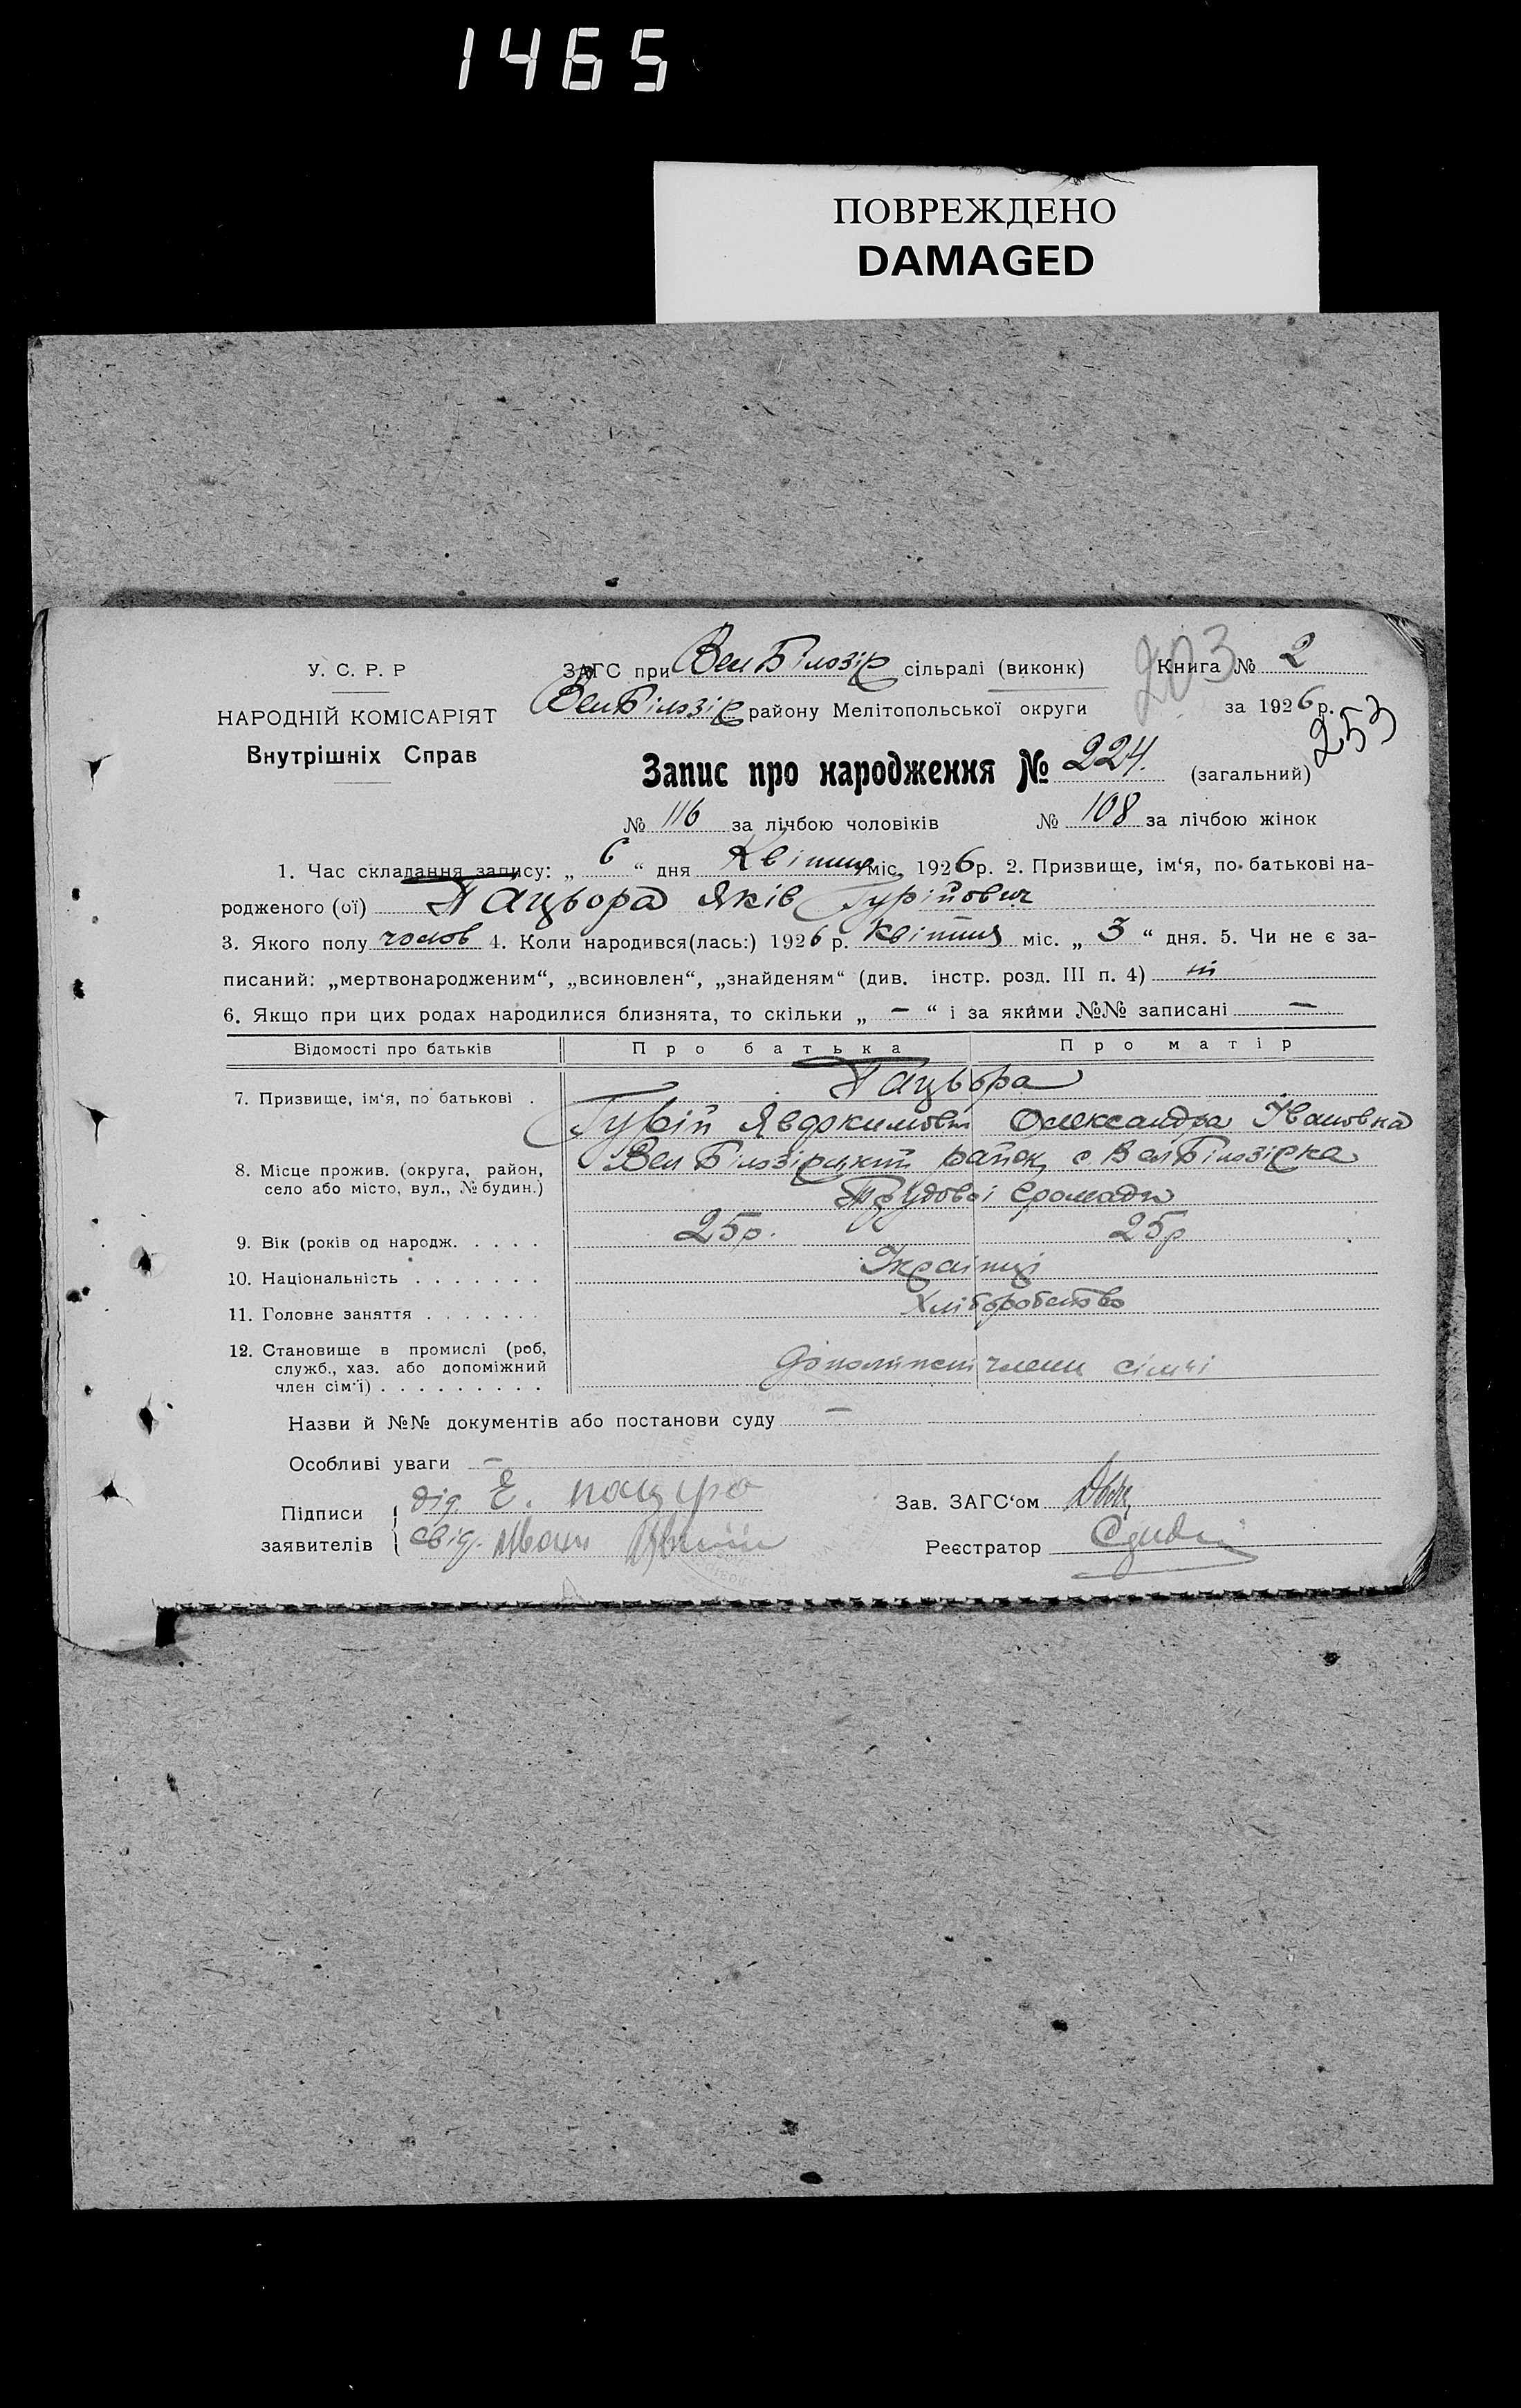 1465
ПОВРЕЖДЕНО
DAMAGED
У. С. Р. Р
НАРОДНІЙ КОМІСАРІЯТ
Внутрішніх Справ
ЗАГС при Вел Білозір сільраді (виконк)
Вел Білозір району Мелітопольської округи
203
Книга № 2
за 1926 р.
253
Запис про народження № 224. (загальний)
№ 116 за лічбою чоловіків № 108 за лічбою жінок
1. Час складання запису: „ 6 “ дня Квітня міс. 1926 р. 2. Призвище, ім‘я, по-батькові на-
родженого (ої) Пацьора Яків Гурійович
3. Якого полу чолов 4. Коли народився(лась:) 1926 р. Квітня міс. „ 3 “ дня. 5. Чи не є за-
писаний: „мертвонародженим“, „всиновлен“, „знайденям“ (див. інстр. розд. III п. 4) ні
6. Якщо при цих родах народилися близнята, то скільки „ — “ і за якими №№ записані —
Відомості про батьків Про батька Про матір
7. Призвище, ім‘я, по батькові . Пацьора
Гурій Явдокимович Олександра Івановна
8. Місце прожив. (округа, район,
село або місто, вул., № будин.)
Вел Білозірський район, с. Вел Білозірка
Трудової Громади
9. Вік (років од народж. . . . . 25р. 25р
10. Національність . . . . . . . Українці
11. Головне заняття . . . . . . . Хліборобство
12. Становище в промислі (роб,
служб., хаз. або допоміжний
член сім‘ї) . . . . . . . . .
члени сім‘ї
Назви й №№ документів або постанови суду —
Особливі уваги —
Підписи
заявителів
дід Е. пацура
свід. Иван
Зав. ЗАГС‘ом
Реєстратор